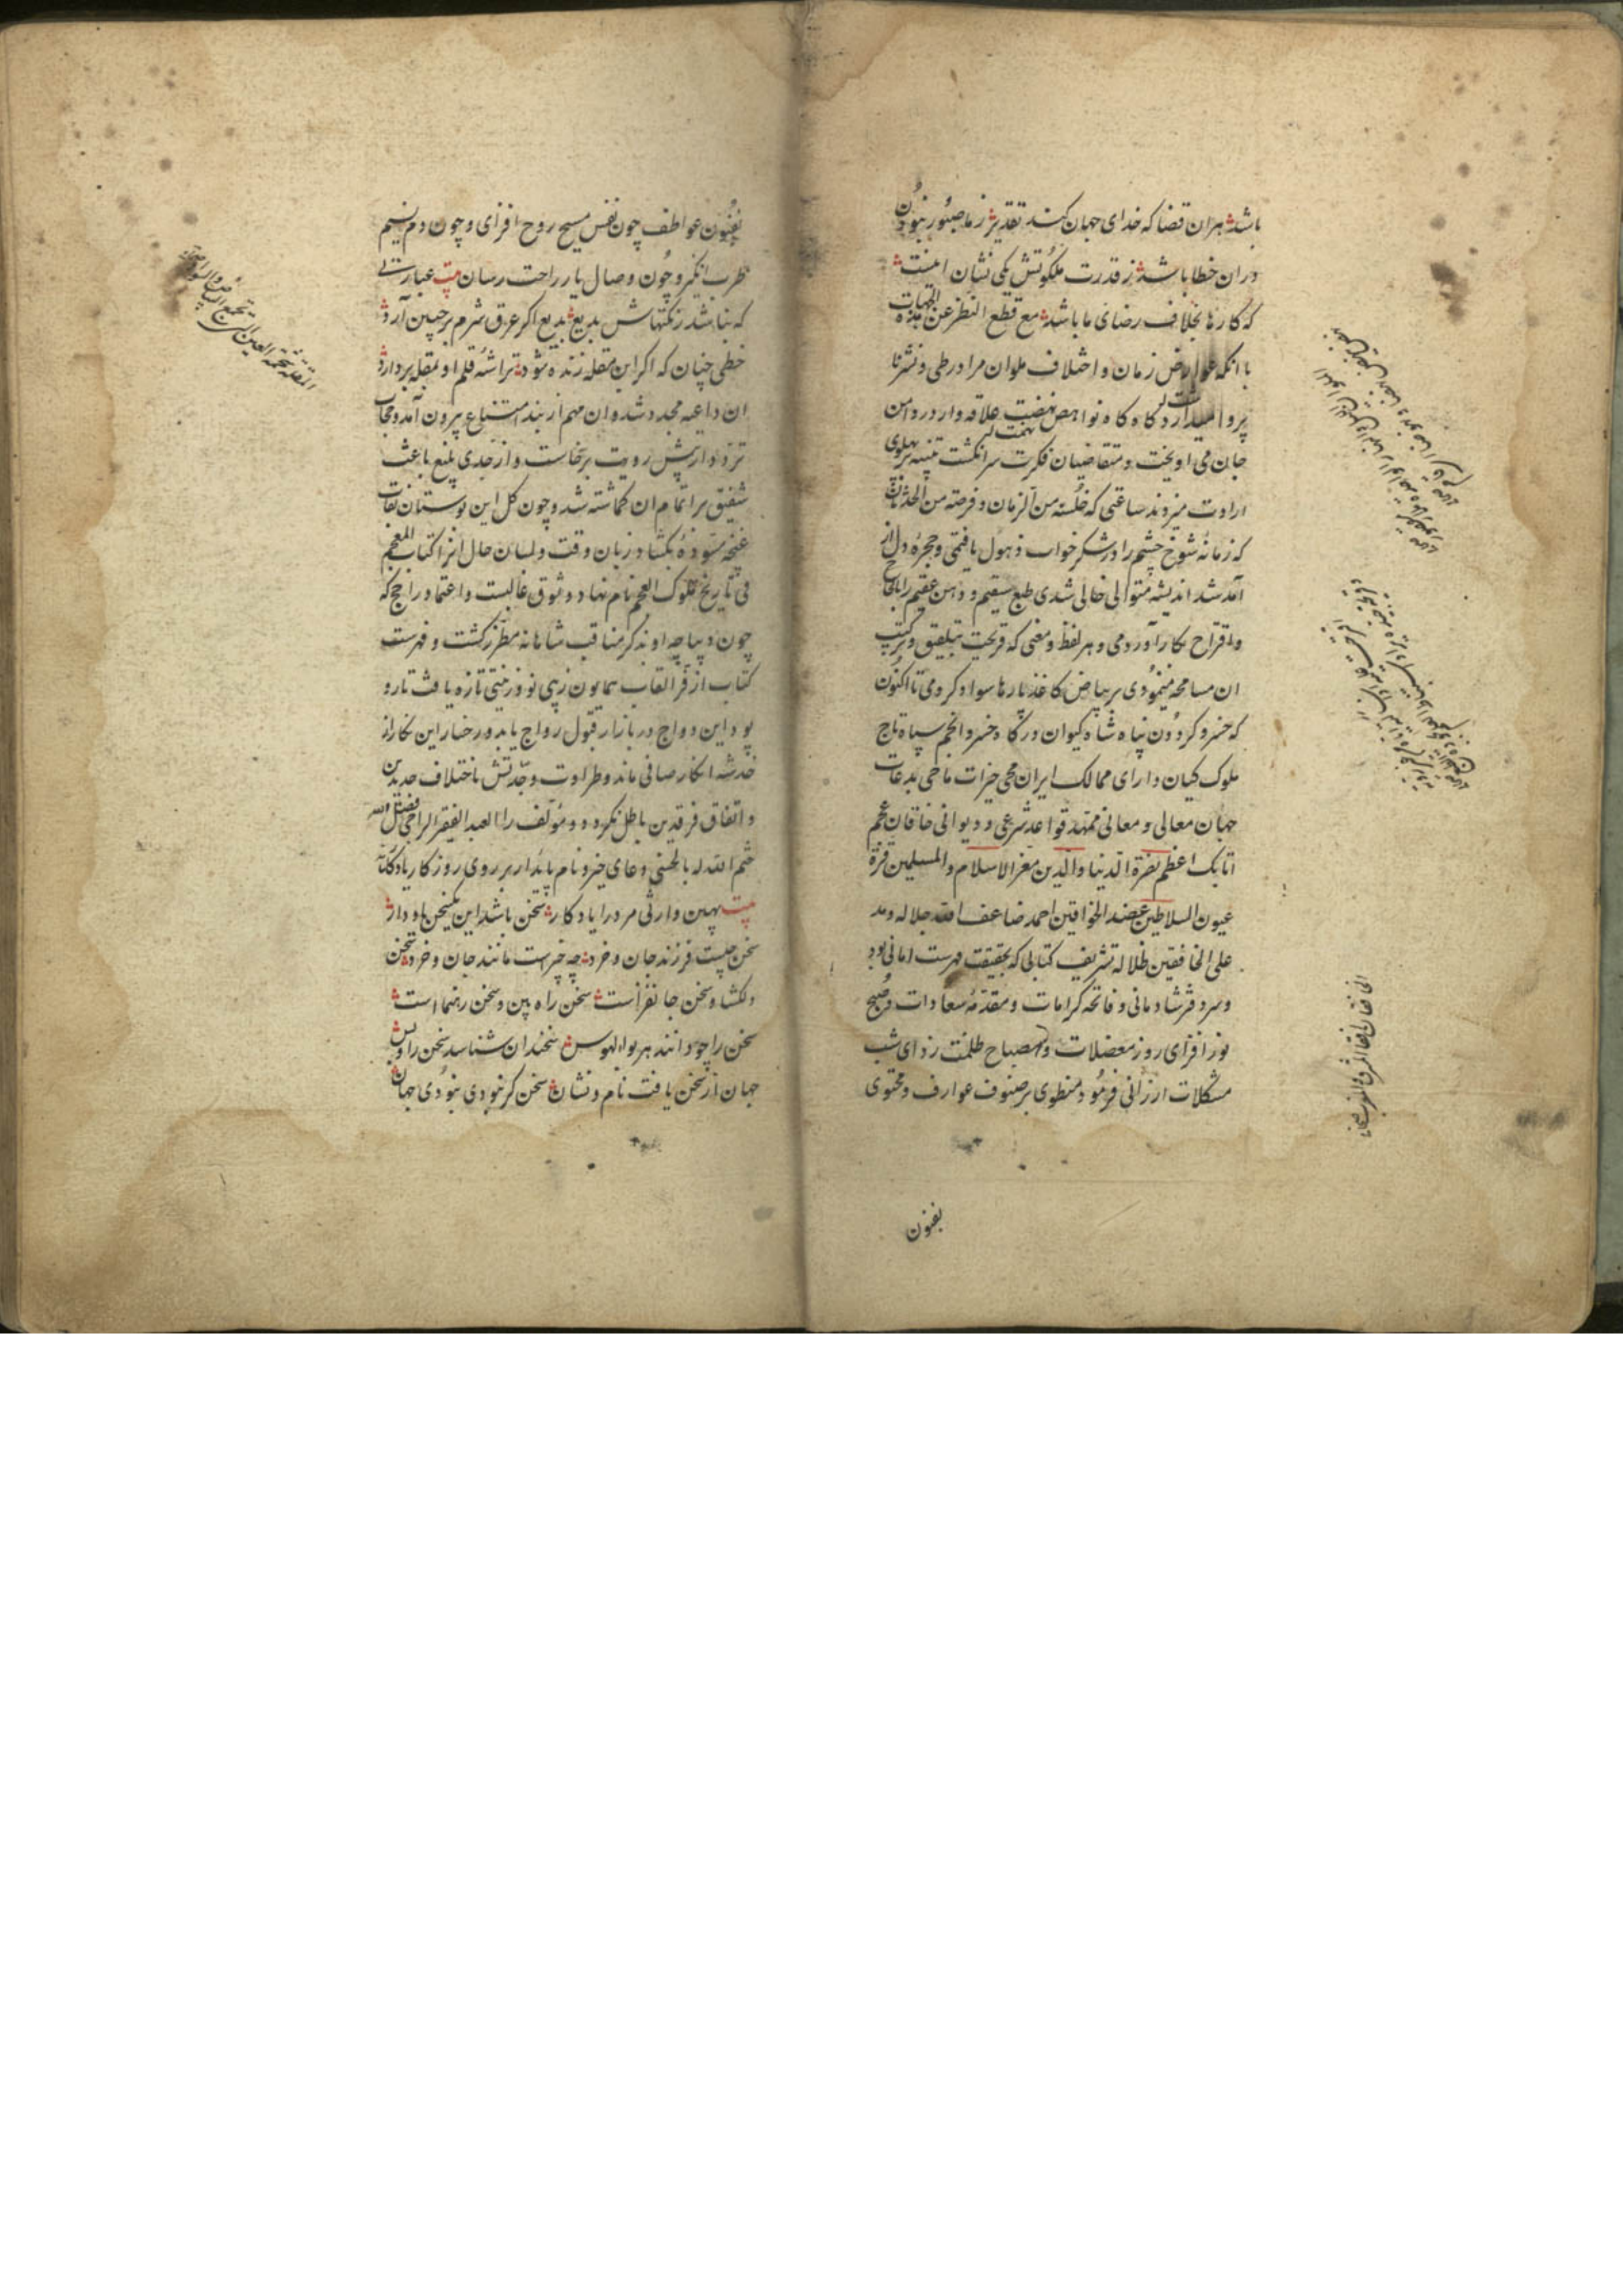 باشد هران قضا که خدای جهان کند تقدیر ز ما صبور نبودن
دران خطا باشد ز قدرت ملکوتش یکی نشان اینست
که کارها بخلاف رضای ما باشد مع قطع النظر عن هذه الجهات
با انکه عوارض زمان و اختلاف ملوان مرا در طی و نشر نا
پروا میدارد کاه کاه نواهض نهضت علاقه وار در دامن
جان می اویخت و متقاضیان فکرت سر انکشت تنبیه بر پهلوی
ارادت میزدند ساعتی که خلسة من الزمان و فرصة من الحدثان
که زمانه شوخ چشم را در شکر خواب ذهول یافتمی و حجره دل از
آمد شد اندیشه متوالی خالی شدی طبع سقیم و ذهن عقیم را بالحاح
و اقتراح بکار آوردمی و هر لفظ و معنی که قریحت بتلفیق و ترکیب
ان مسامحه مینمودی بر بیاض کاغذ پارها سواد کردمی تا اکنون
که خسرو کردون پناه شاه کیوان درکاه خسرو انجم سپاه تاج
ملوک کیان دارای ممالک ایران محیی خیرات ماحی بدعات
جهان معالی و معانی ممهد قواعد شرعی و دیوانی خاقان عجم
اتابک اعظم نصرة الدنیا والدین معز الاسلام والمسلمین قرة
عیون السلاطین عضد الخواقین احمد ضاعف الله جلاله ومد
علی الخافقین ظلاله تشریف کتابی که بحقیقت فهرست امانی بود
و سر دفتر شادمانی و فاتحه کرامات و مقدمه سعادات و صبح
نور افزای روز معضلات و مصباح ظلمت زدای شب
مشکلات ارزانی فرمود منطوی بر صنوف عوارف و محتوی
بفنون
بفنون عواطف چون نفس مسیح روح افزای و چون دم نسیم
طرب انکیز و چون وصال یار راحت رسان بیت عبارتی
که بنا شد ز نکتهاش بدیع بدیع اکر عرق شرم بر جبین آرد
خطی چنان که اکر ابن مقله زنده شود تراشه قلم او بمقله بردارد
ان داعیه مجدد شد وان مهم از بند امتناع بیرون آمد و حجاب
تردد از پیش رویت برخاست و از جدی بلیغ باعث
شفیق بر اتمام ان کماشته شد و چون کل این بوستان نقاب
غنچه مسوده بکشاد زبان وقت و لسان حال انرا کتاب المعجم
فی تاریخ ملوک العجم نام نهاد و وثوق غالبست و اعتماد راجح که
چون دیباچه او بذکر مناقب شاهانه مطرز کشت و فهرست
کتاب از فر القاب همایون زیبی نو و زینتی تازه یافت تار و
پود این دواج در بازار قبول رواج یابد و رخسار این نکار از
خدشه انکار صافی ماند و طراوت و جدتش باختلاف جدیدین
و اتفاق فرقدین باطل نکردد و مؤلف را العبد الفقیر الراجی فضل الله
ختم الله له بالحسنی دعای خیر و نام پایدار بر روی روزکار یادکار
بیت بهین وارثی مرد را یادکار سخن باشد این یکسخن یاد دار
سخن چیست فرزند جان و خرد چه چیز است مانند جان و خرد سخن
دلکشا و سخن جانفزاست سخن راه بین و سخن رهنماست
سخن را چو دانند هر بوالهوس سخندان شناسد سخن را و بس
جهان از سخن یافت نام و نشان سخن کر نبودی نبودی جهان